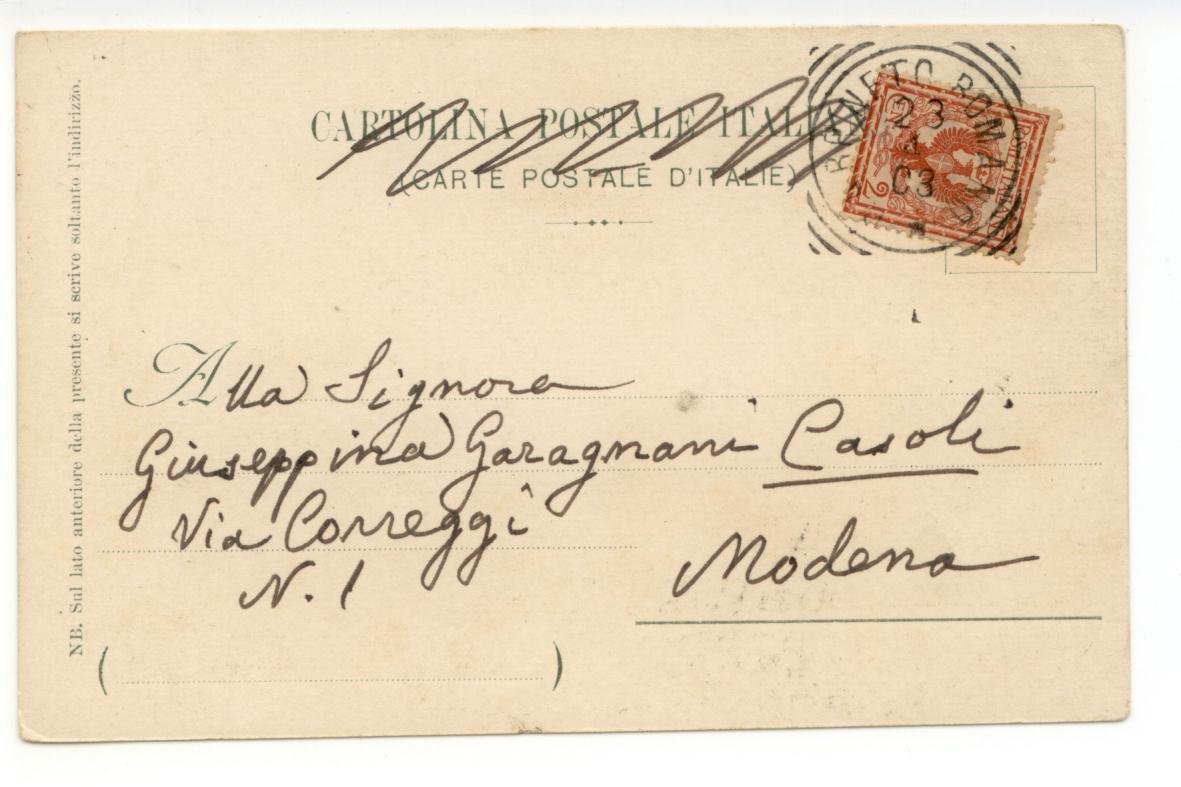 CARTOLINA POSTALE ITALIANA
(CARTE POSTALE D'ITALIE)
ORANETO ROMANO
23
4
03
POSTE ITALIANE
2
Alla Signora
Giuseppina Garagnani Casoli
Via Correggi
N. 1
Modena
NB. Sul lato anteriore della presente si scrive soltanto l'indirizzo.